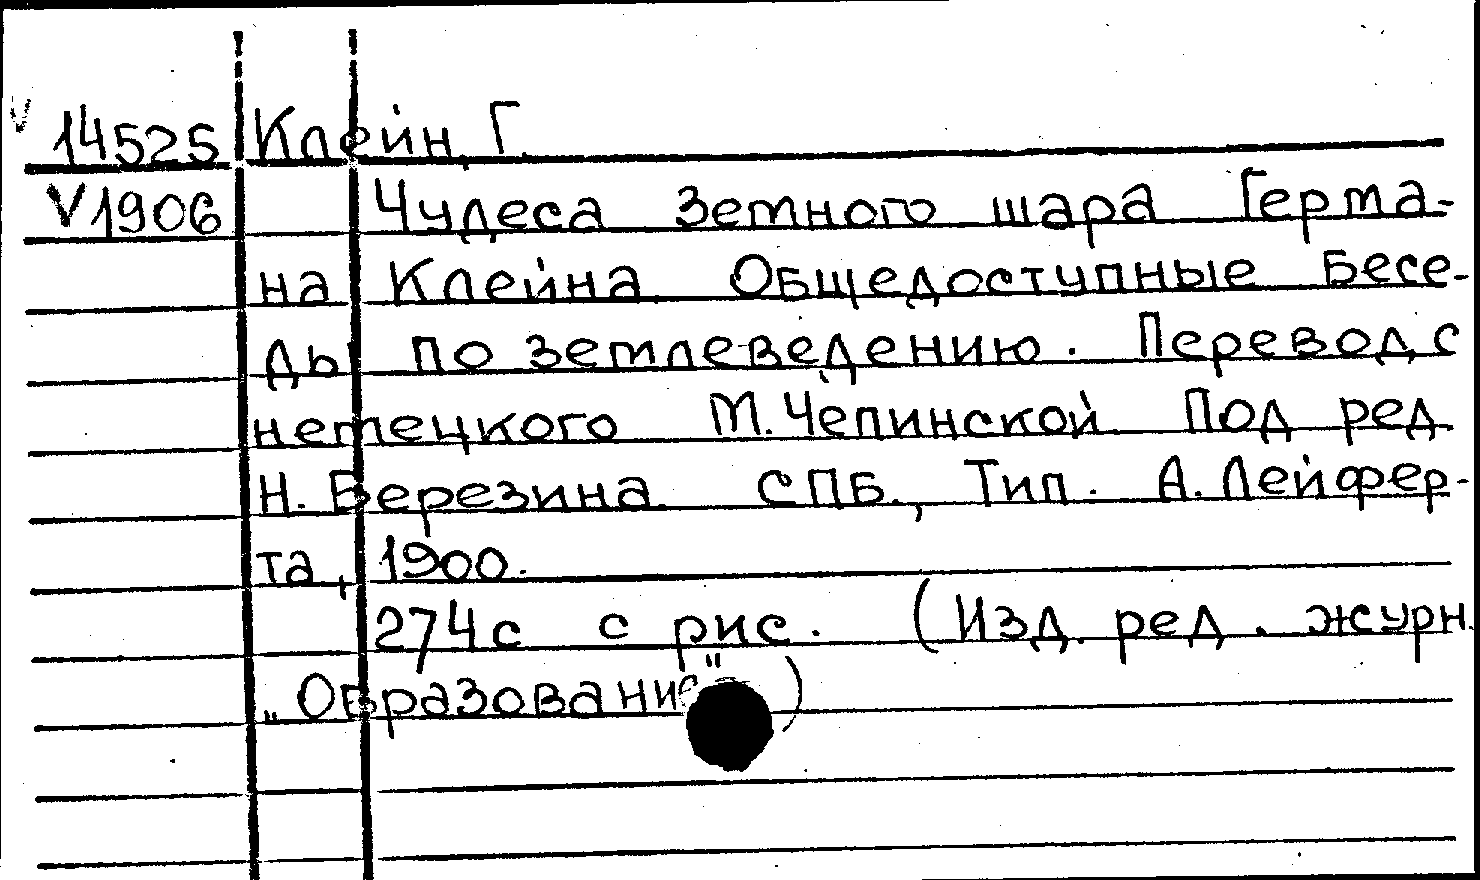 14525 Клейн, Г.
V1906 Чудеса Земного шара Герма-
на Клейна. Общедоступные бесе-
ды по землеведению. Перевод с
немецкого М. Чепинской. Под ред.
Н. Березина. СПБ., Тип. А. Лейфер-
та, 1900.
274с с рис. (Изд. ред. журн.
„Образование")